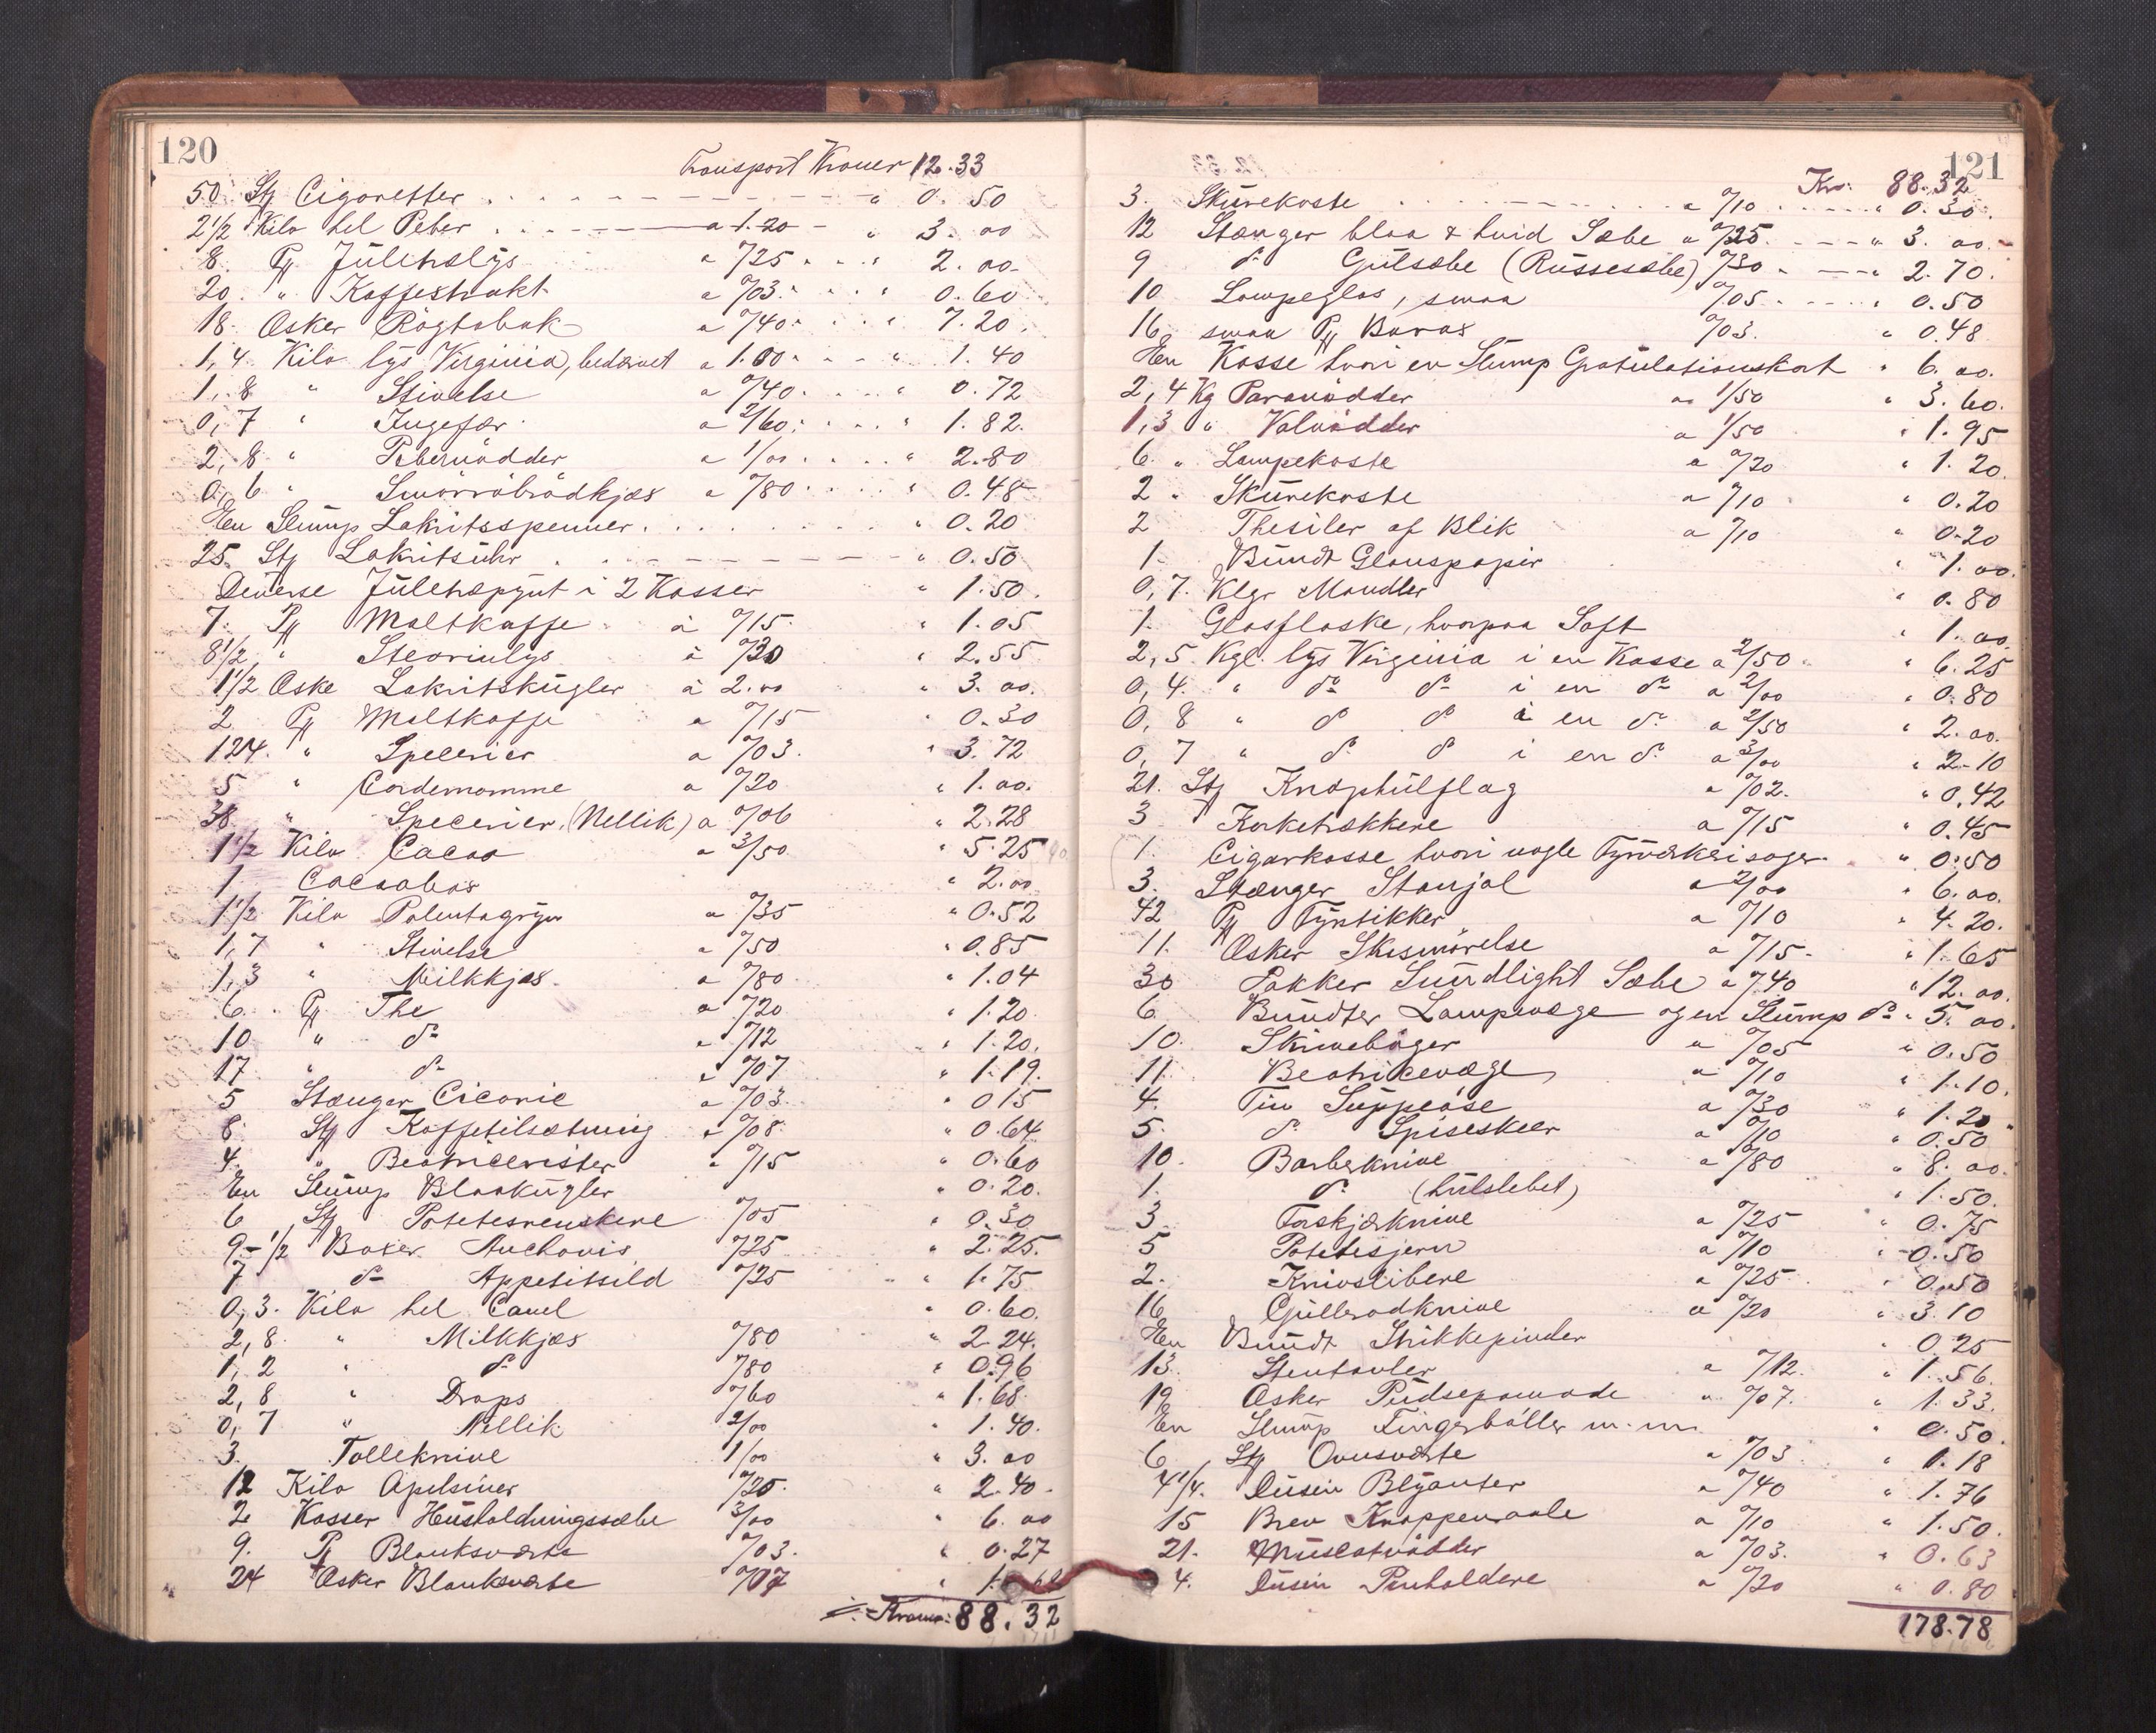 120
Transport Kroner 12.33
50 Stk Cigaretter " 0.50
2 1/2 Kilo hel Peber a 1.20 " 3.00
8 Pk Juletrælys a 0/25 " 2.00
20 " Kaffestrakt a 0/03 " 0.60
18 Æsker Røgtobak a 0/40 " 7.20
1,4 Kilo lys Virginia, bedærvet a 1.00 " 1.40
1,8 " Stivelse a 0/40 " 0.72
0,7 " Ingefær a 2/60 " 1.82
2,8 " Pebernødder a 1/00 " 2.80
0,6 " Smörrebrödkjæs a 0/80 " 0.48
En Slump Lakritsspenner " 0.20
25 Stk Lakritsuhr " 0.50
Diverse Juletræpynt i 2 Kasser " 1.50
7 Pk Maltkaffe à 0/15 " 1.05
8 1/2 " Stearinlys à 0/30 " 2.55
1 1/2 Æske Lakritskugler à 2.00 " 3.00
2 Pk Maltkaffe a 0/15 " 0.30
124 " Specerier a 0/03 " 3.72
5 " Cardemomme a 0/20 " 1.00
38 " Specerier (Nellik) a 0/06 " 2.28
1 1/2 Kilo Cacao a 3/50 " 5.25
1 Cacaobox " 2.00
1 1/2 Kilo Polentagryn a 0/35 " 0.52
1,7 " Stivelse a 0/50 " 0.85
1,3 " Milkkjæs a 0/80 " 1.04
6 Pk The a 0/20 " 1.20
10 " do a 0/12 " 1.20
17 " do a 0/07 " 1.19
5 Stænger Cicorie a 0/03 " 0 15
8 Stk Kaffetilsætning a 0/08 " 0.64
4 " Beatricerister " 0/15 " 0.60
En Slump Blaakugler " 0.20
6 Stk Potetesrenskere 0/05 " 0.30
9-1/2 Boxer Anchovis 0/25 " 2.25
7 do Appetitsild 0/25 " 1.75
0,3 Kilo hel Canel " 0.60
2,8 " Milkkjæs 0/80 " 2.24
1,2 " do 0/80 " 0.96
2,8 " Drops 0/60 " 1.68
0,7 " Nellik 2/00 " 1.40
3 Tolleknive 1/00 " 3.00
12 Kilo Apelsiner 0/20 " 2.40
2 Kasser Husholdningssæbe 3/00 " 6.00
9 Pk Blanksværte 0/03 " 0.27
24 Æsker Blanksværte 0/07 " 1.68
Kroner: 88.32
121
Kr: 88.32
3 Skurekoste a 0/10 " 0.30
12 Stænger blaa & hvid Sæbe a 0/25 " 3.00
9 do Gulsæbe (Russesæbe) 0/30 " 2.70
10 Lampeglas, smaa 0/05 " 0.50
16 smaa Pk Borax 0/03 " 0.48
En Kasse hvori en Slump Gratulationskort " 6.00
2,4 Kg Paranödder a 1/50 " 3.60
1,3 " Valnödder a 1/50 " 1.95
6 " Lampekoste a 0/20 " 1.20
2 " Skurekoste a 0/10 " 0.20
2 Thesiler af Blik a 0/10 " 0.20
1 Bundt Glanspapir " 1.00
0,7 Klgr Mandler " 0.80
1 Glasflaske, hvorpaa Saft " 1.00
2,5 Kgl. lys Virginia i en Kasse a 2/50 " 6.25
0,4 " do do i en do a 2/00 " 0.80
0,8 " do do i en do a 2/50 " 2.00
0,7 " do do i en do a 3/00 " 2.10
21 Stk Knaphulflag a 0/02 " 0,42
3 Korketrækkere a 0/15 " 0.45
1 Cigarkasse hvori nogle Fyrværkerisager " 0.50
3 Stænger Stanjol a 2/00 " 6.00
42 Pk Fyrstikker a 0/10 " 4.20
11 Æsker Skismörelse a 0/15 " 1.65
30 Pakker Sundlight Sæbe a 0/40 " 12.00
6 Bundter Lampevæge og en Slump do " 5.00
10 Skrivebøger a 0/05 " 0.50
11 Beatricevæge a 0/10 " 1.10
4 Tin Suppeöse a 0/30 " 1.20
5 do Spiseskeer a 0/10 " 0.50
10 Barberknive a 0/80 " 8.00
1 do (hulslebet) " 1.50
3 Forskjærknive a 0/25 " 0.75
5 Potetesjern a 0/10 " 0.50
2 Knivslibere a 0/25 " 0.50
16 Gullerodknive a 0/20 " 3.10
En Bundt Strikkepinder " 0.25
13 Stentavler a 0/12 " 1.56
19 Æsker Pudsepomade " 0/07 " 1.33
En Slump Fingerböller m.m. " 0.50
6 Stk Ovnsværte " 0/03 " 0.18
4 1/4 Dusin Blyanter " 0/40 " 1.76
15 Brev Knappenaale a 0/10 " 1.50
21 Muscatnödder a 0/03 " 0.63
4 Dusin Penholdere a 0/20 " 0.80
178.78